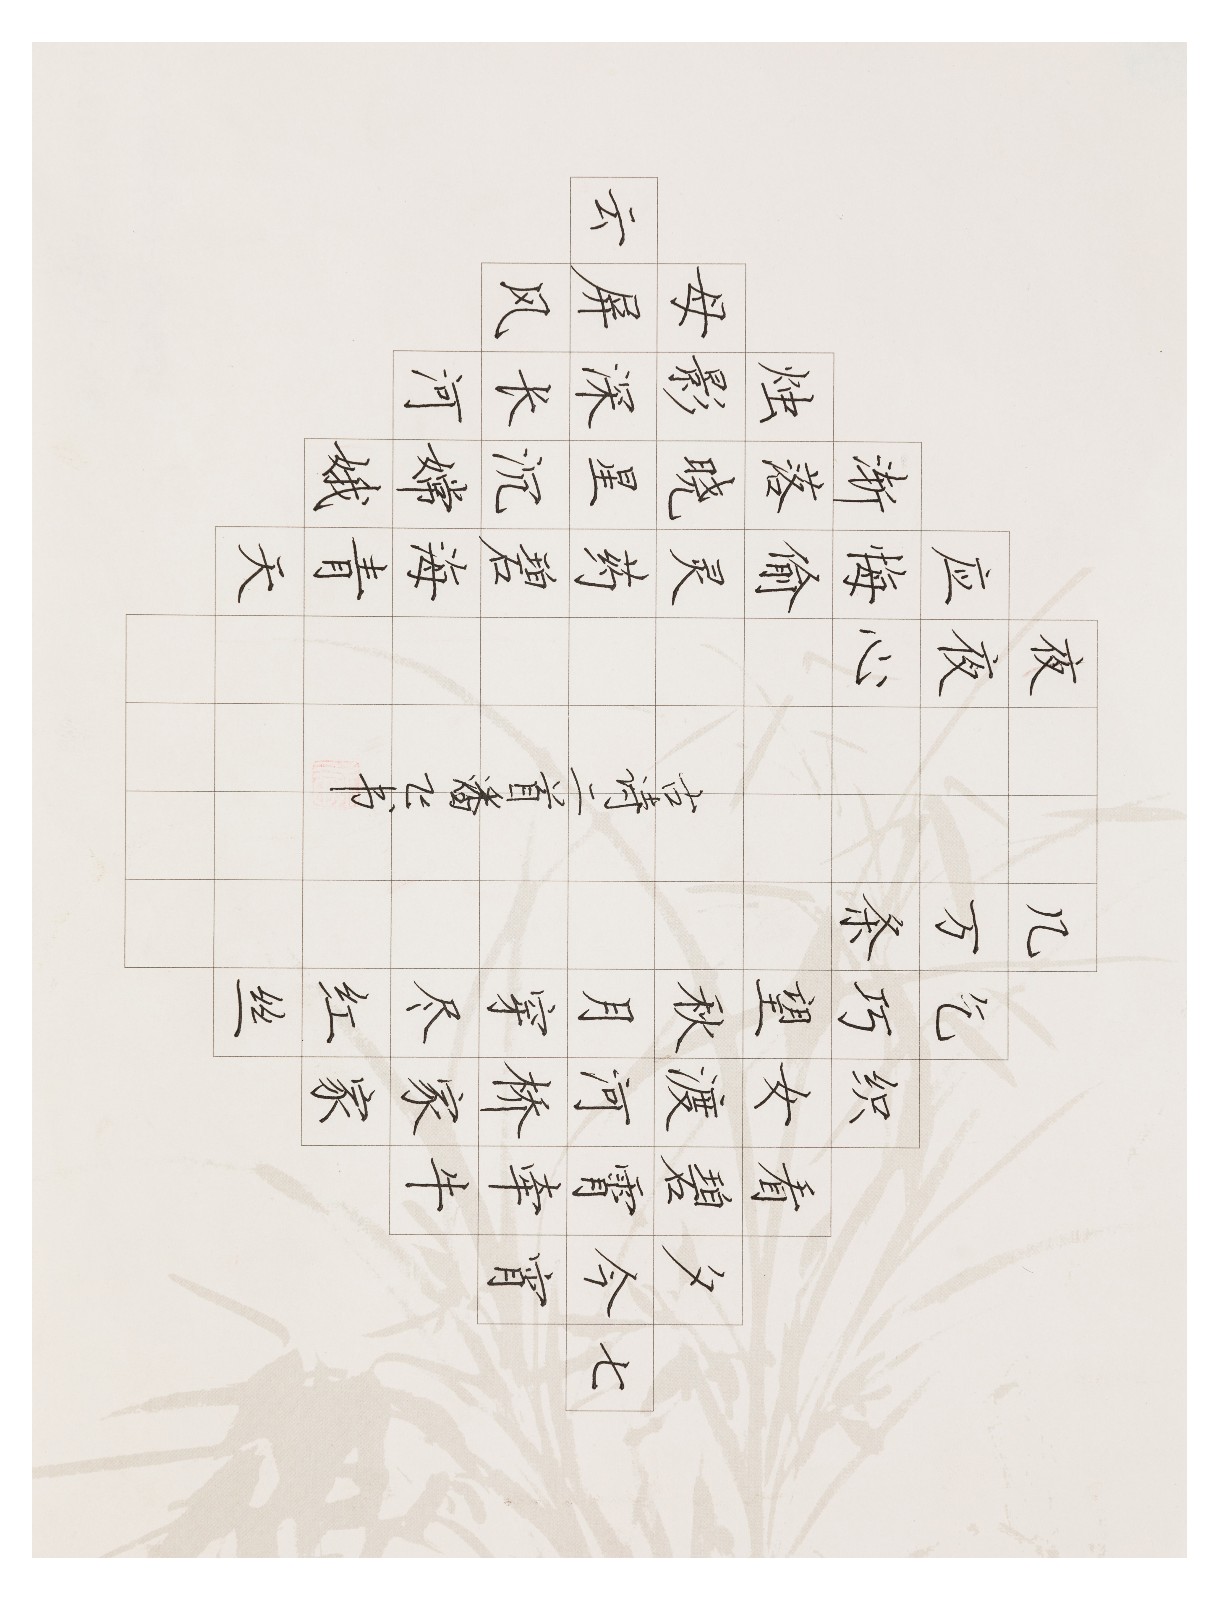 七
夕今宵
看碧霄牵牛
织女渡河桥家家
乞巧望秋月穿尽红丝
几万条
云
母屏风
烛影深长河
渐落晓星沉嫦娥
应悔偷灵药碧海青天
夜夜心
古诗二首潘飞书